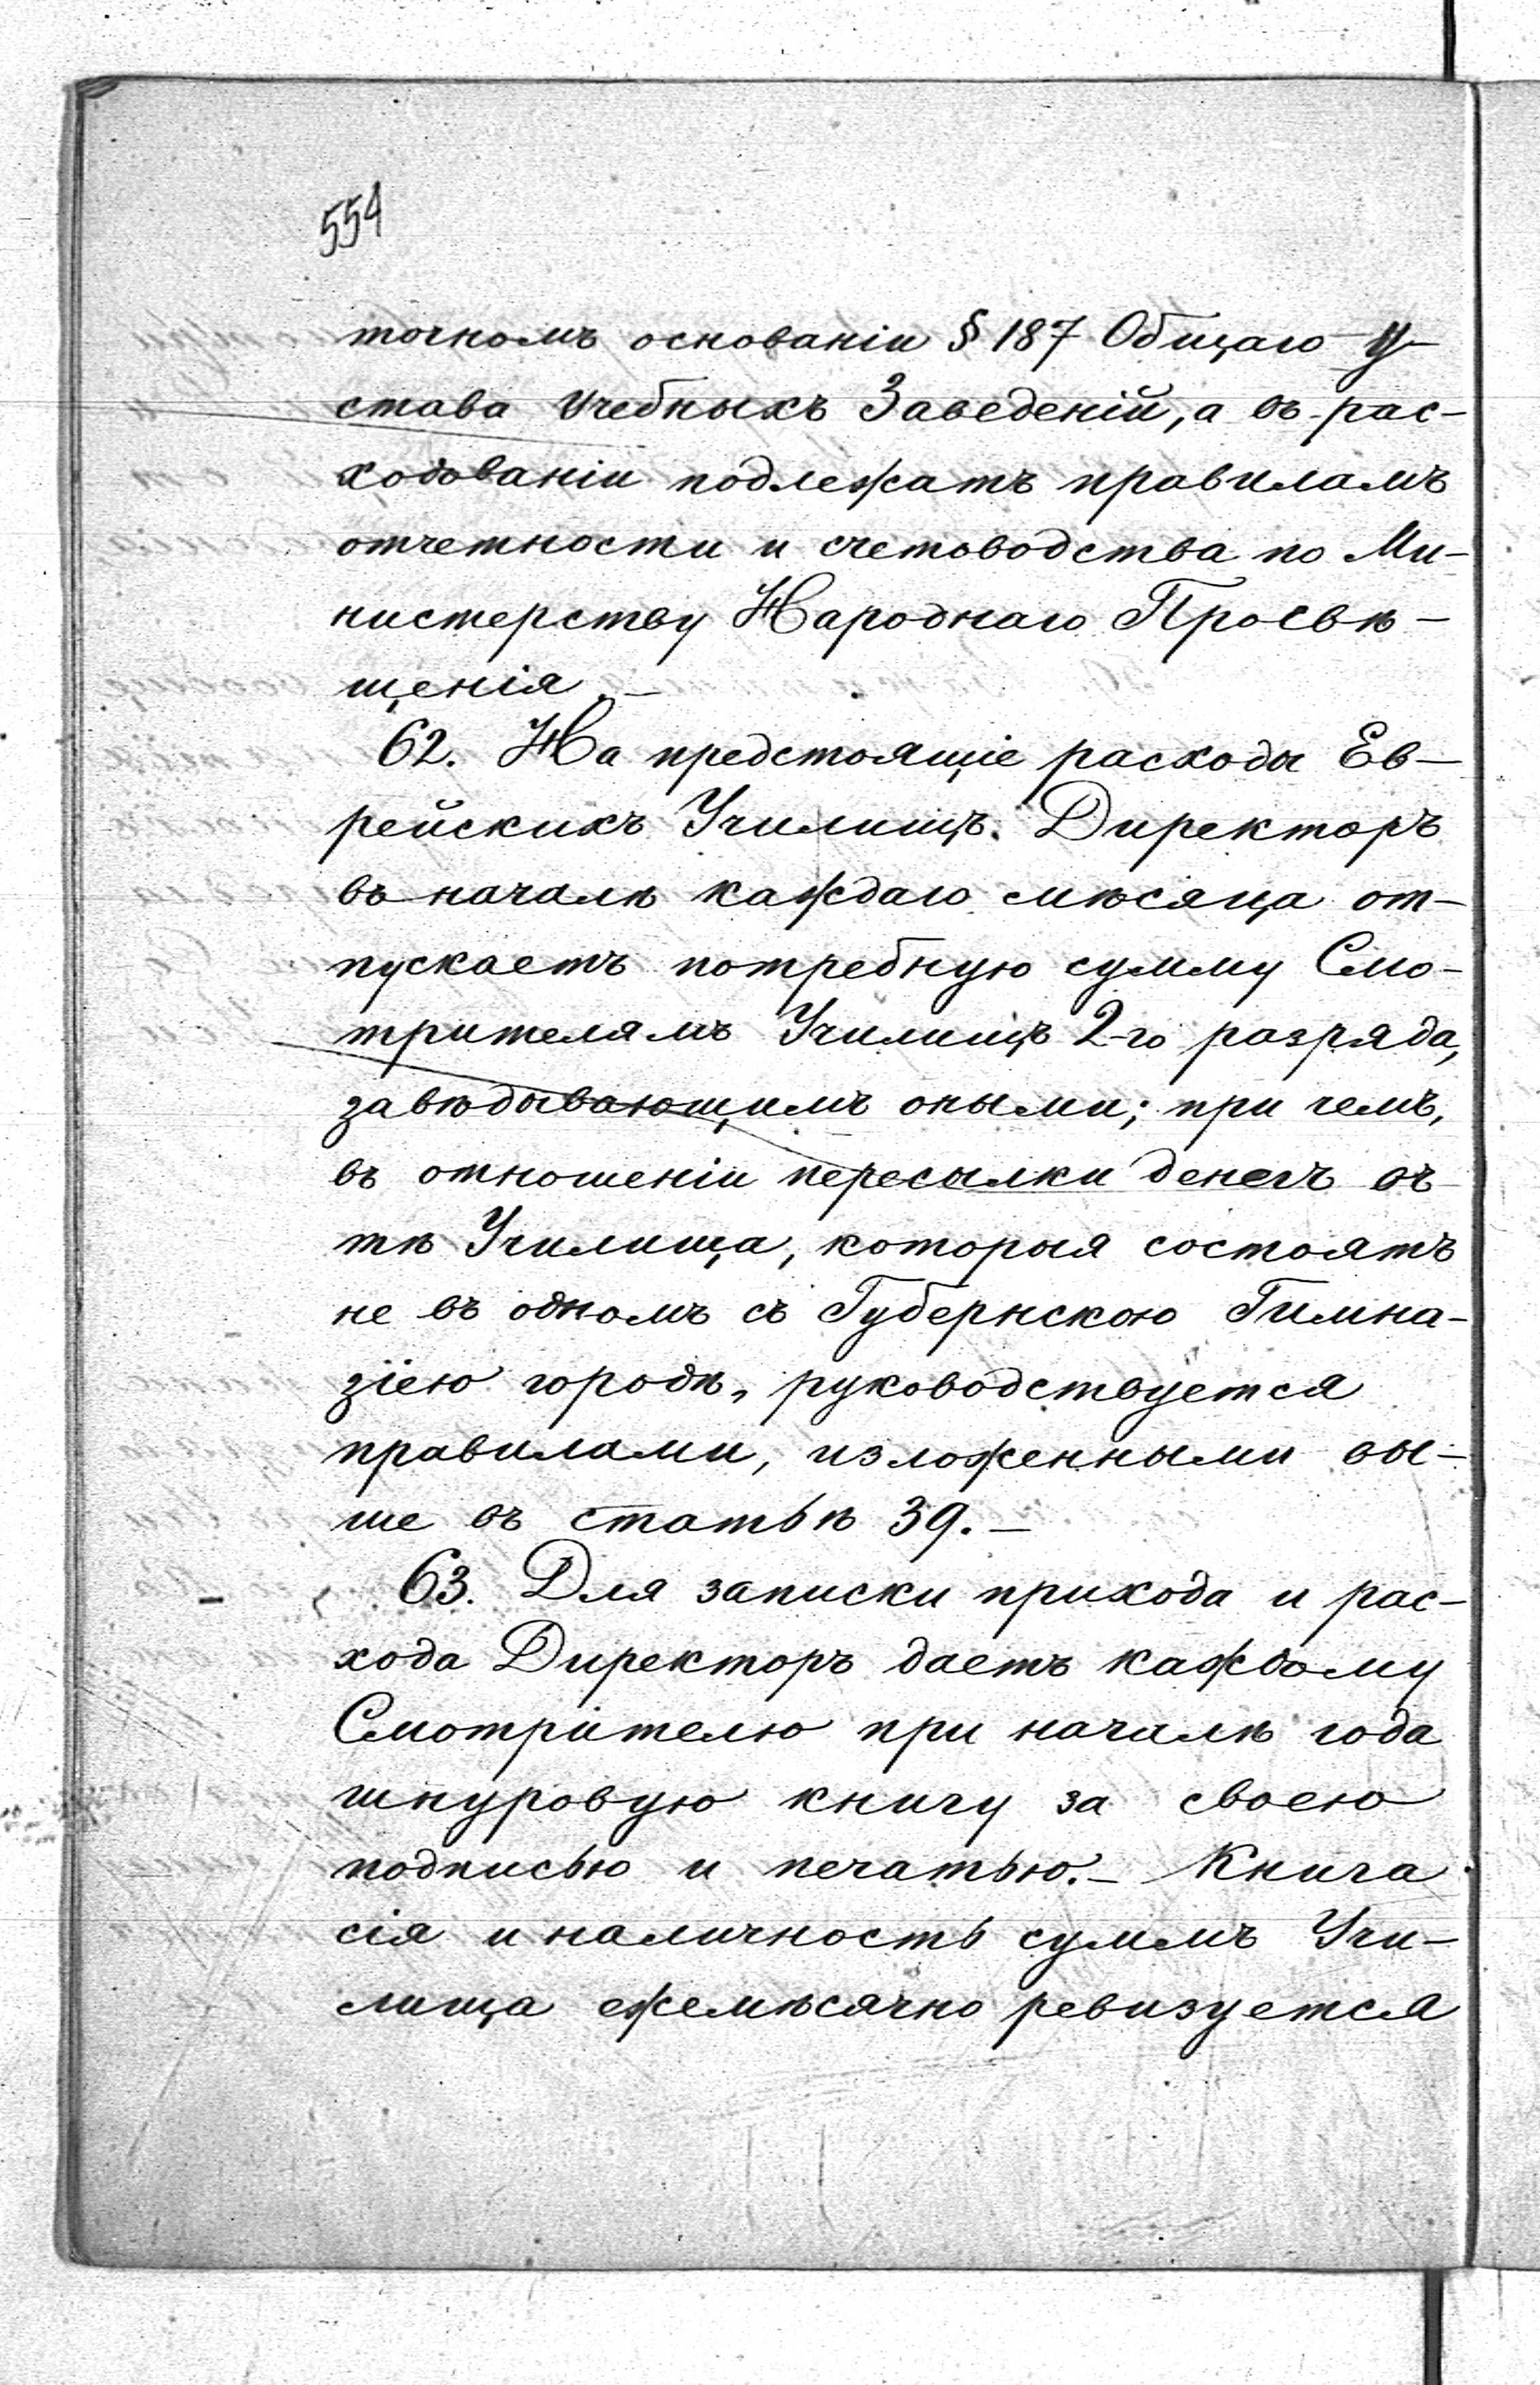 554
точномъ основаніи § 187 Общаго У-
става Учебныхъ Заведеній, а въ рас-
ходованіи подлежатъ правиламъ
отчетности и счетоводства по Ми-
нистерству Народнаго Просвѣ-
щенія.-
62. На предстоящіе расходы Ев-
рейскихъ Училищъ. Директоръ
въ началѣ каждаго мѣсяца от-
пускаетъ потребную сумму Смо-
трителямъ Училищъ 2-го разряда,
завѣдывающимъ оными; при чемъ,
въ отношеніи пересылки денегъ въ
тѣ Училища, которыя состоятъ
не въ одномъ съ Губернскою Гимна-
зіею городѣ, руководствуется
правилами, изложенными вы-
ше въ статьѣ 39.-
63. Для записки прихода и рас-
хода Директоръ даетъ каждому
Смотрителю при началѣ года
шнуровую книгу за своею
подписью и печатью.- Книга
сія и наличность суммъ Учи-
лища ежемѣсячно ревизуется